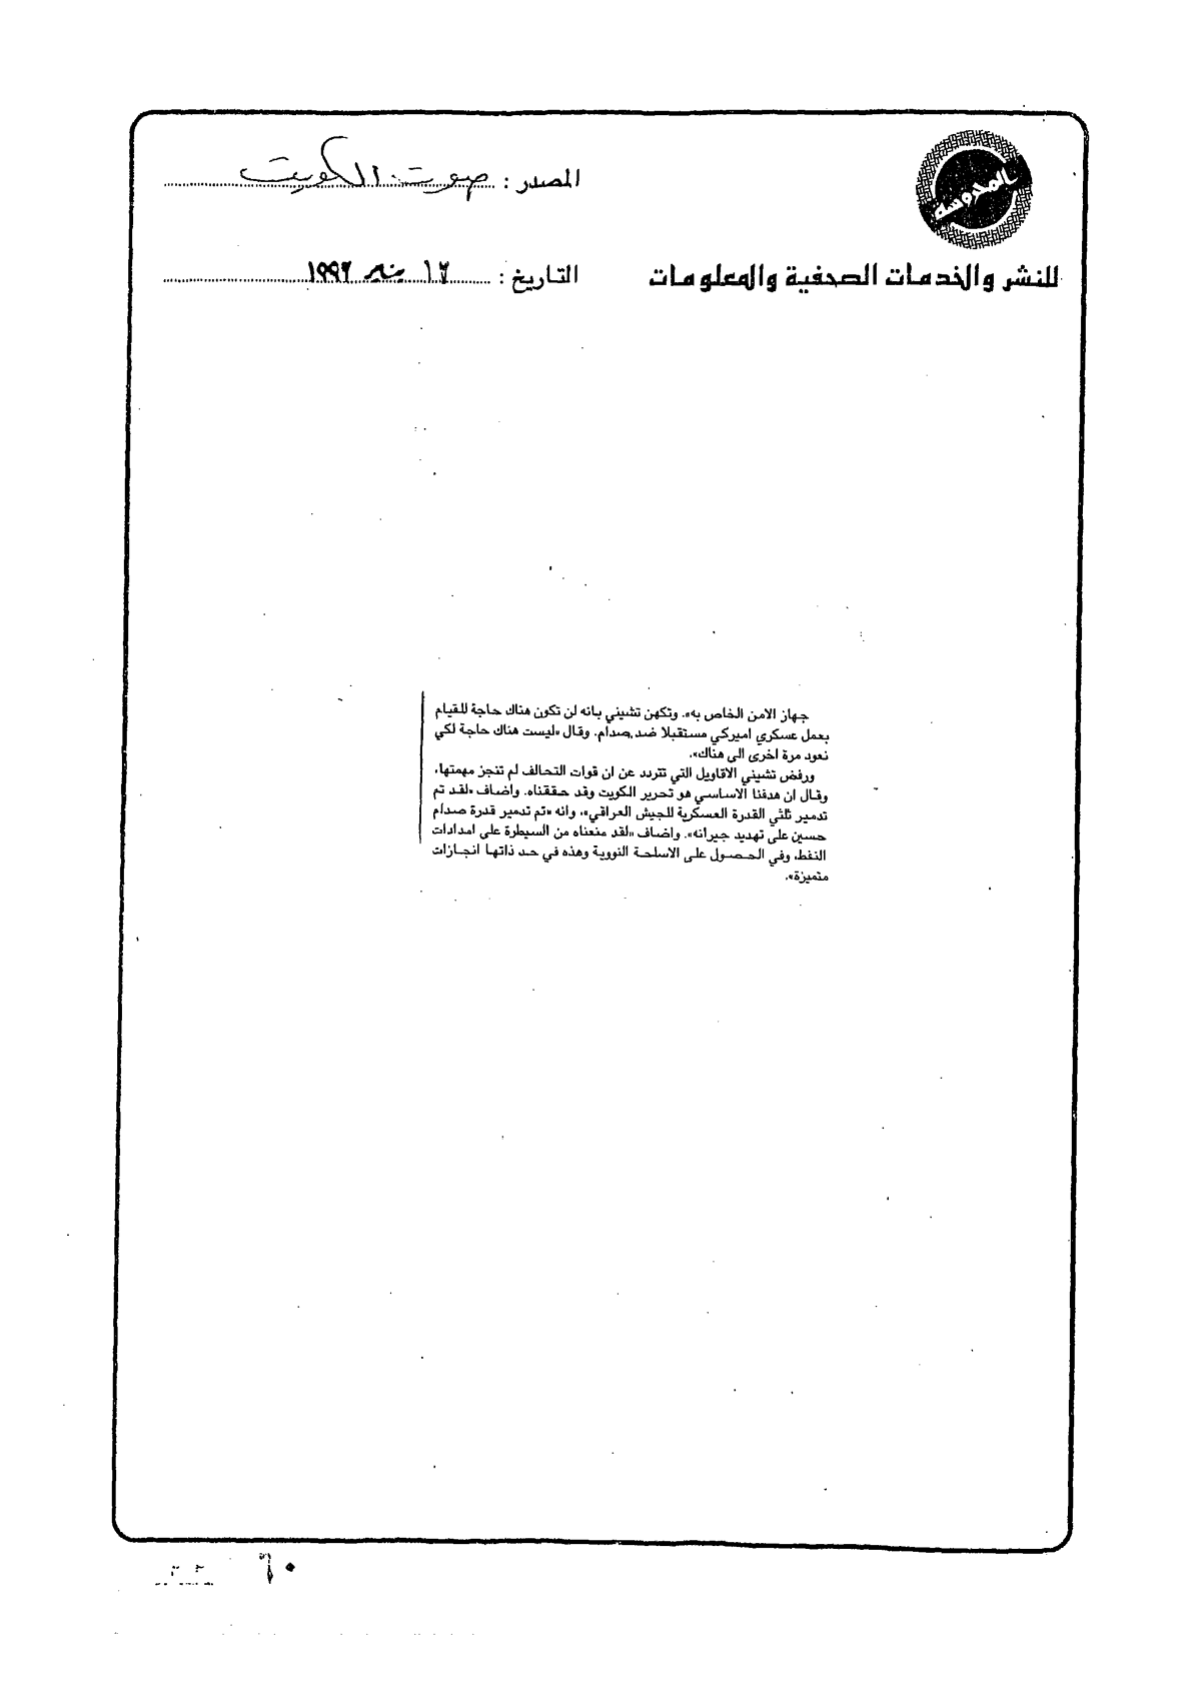 المصدر : صوت الكويت
المحروسة
للنشر والخدمات الصحفية والمعلومات
التاريخ : ١٢ يناير ١٩٩٢
جهاز الامن الخاص به». وتكهن تشيني بانه لن تكون هناك حاجة للقيام
بعمل عسكري اميركي مستقبلا ضد صدام. وقال «ليست هناك حاجة لكي
نعود مرة اخرى الى هناك».
ورفض تشيني الاقاويل التي تتردد عن ان قوات التحالف لم تنجز مهمتها،
وقال ان هدفنا الاساسي هو تحرير الكويت وقد حققناه. واضاف «لقد تم
تدمير ثلثي القدرة العسكرية للجيش العراقي»، وانه «تم تدمير قدرة صدام
حسين على تهديد جيرانه». واضاف «لقد منعناه من السيطرة على امدادات
النفط، وفي الحصول على الاسلحة النووية وهذه في حد ذاتها انجازات
متميزة».
٦٠